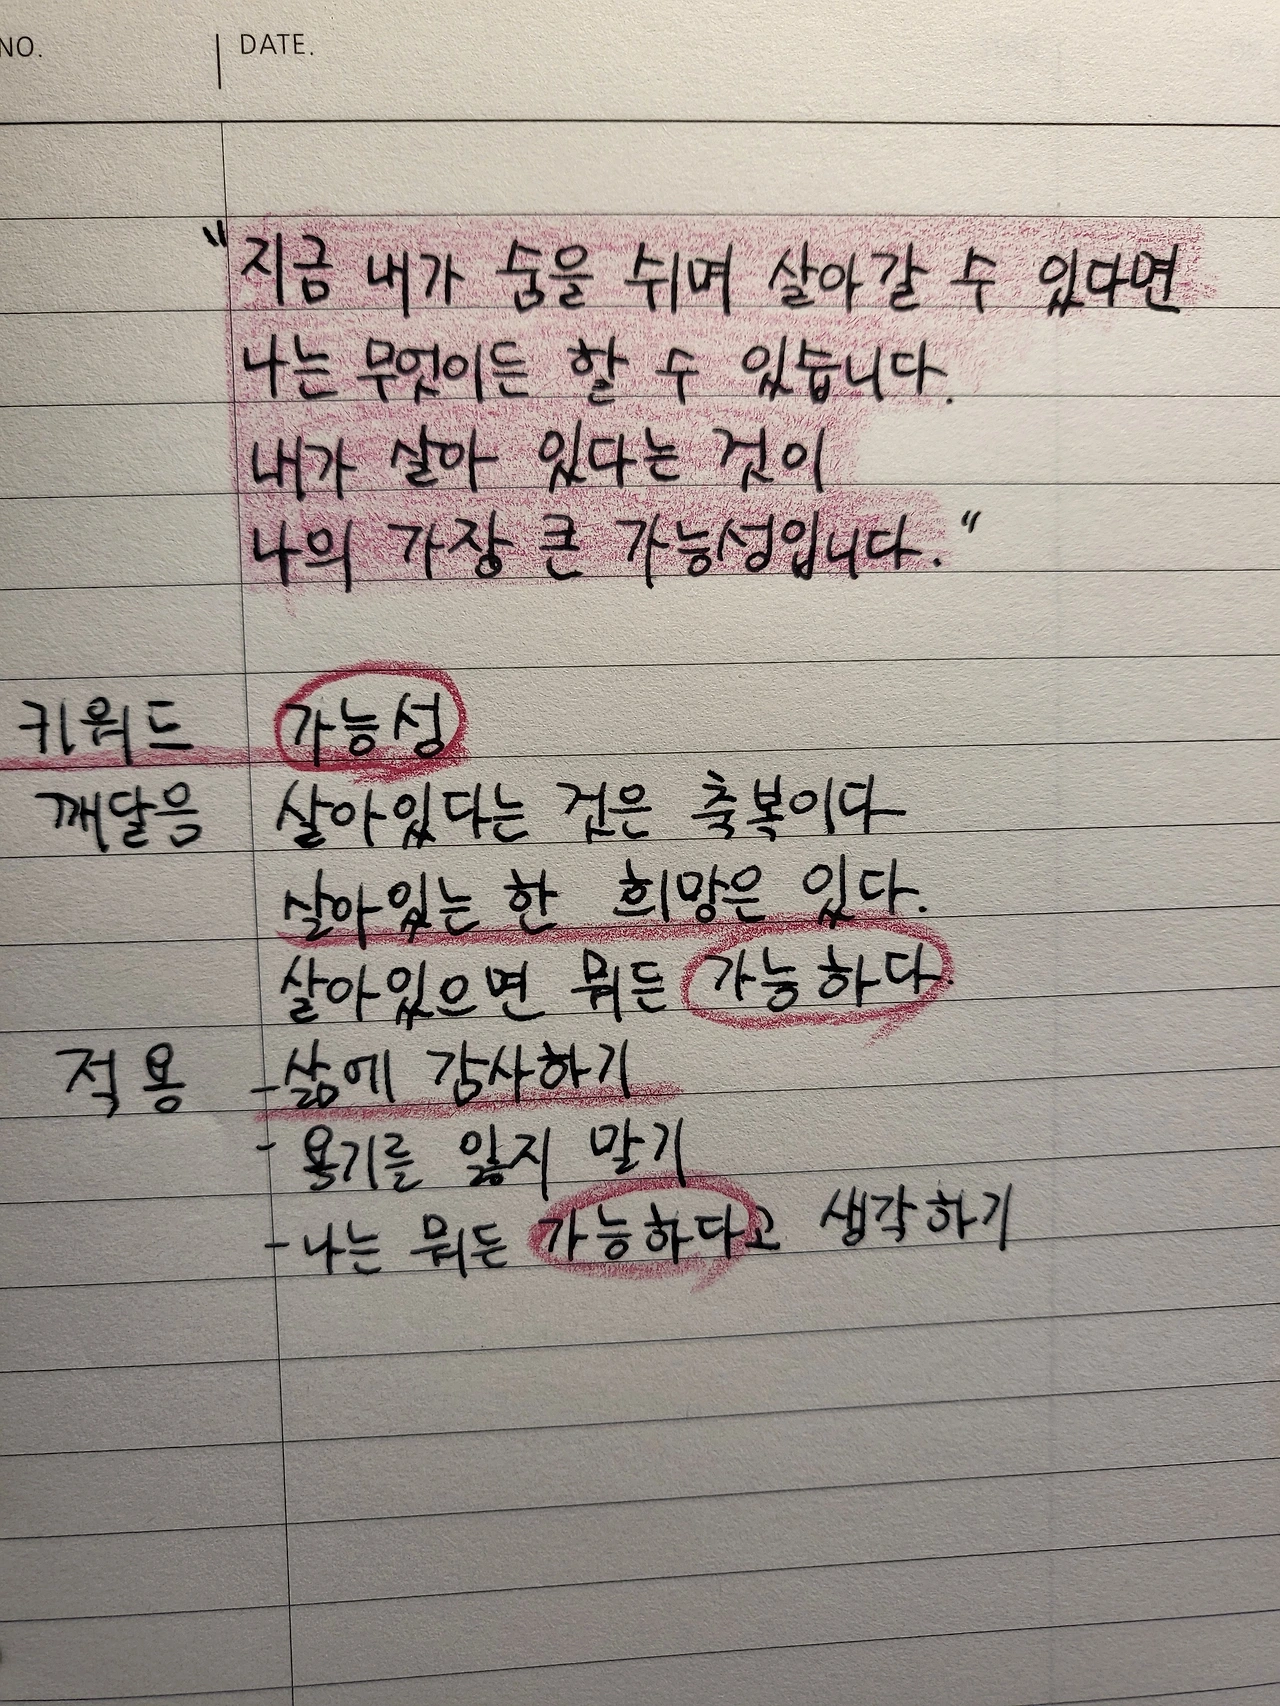 NO. DATE.
"지금 내가 숨을 쉬며 살아갈 수 있다면
나는 무엇이든 할 수 있습니다.
내가 살아 있다는 것이
나의 가장 큰 가능성입니다."
키워드 가능성
깨달음 살아있다는 것은 축복이다
살아있는 한 희망은 있다.
살아있으면 뭐든 가능하다.
적용 - 삶에 감사하기
- 용기를 잃지 말기
- 나는 뭐든 가능하다고 생각하기